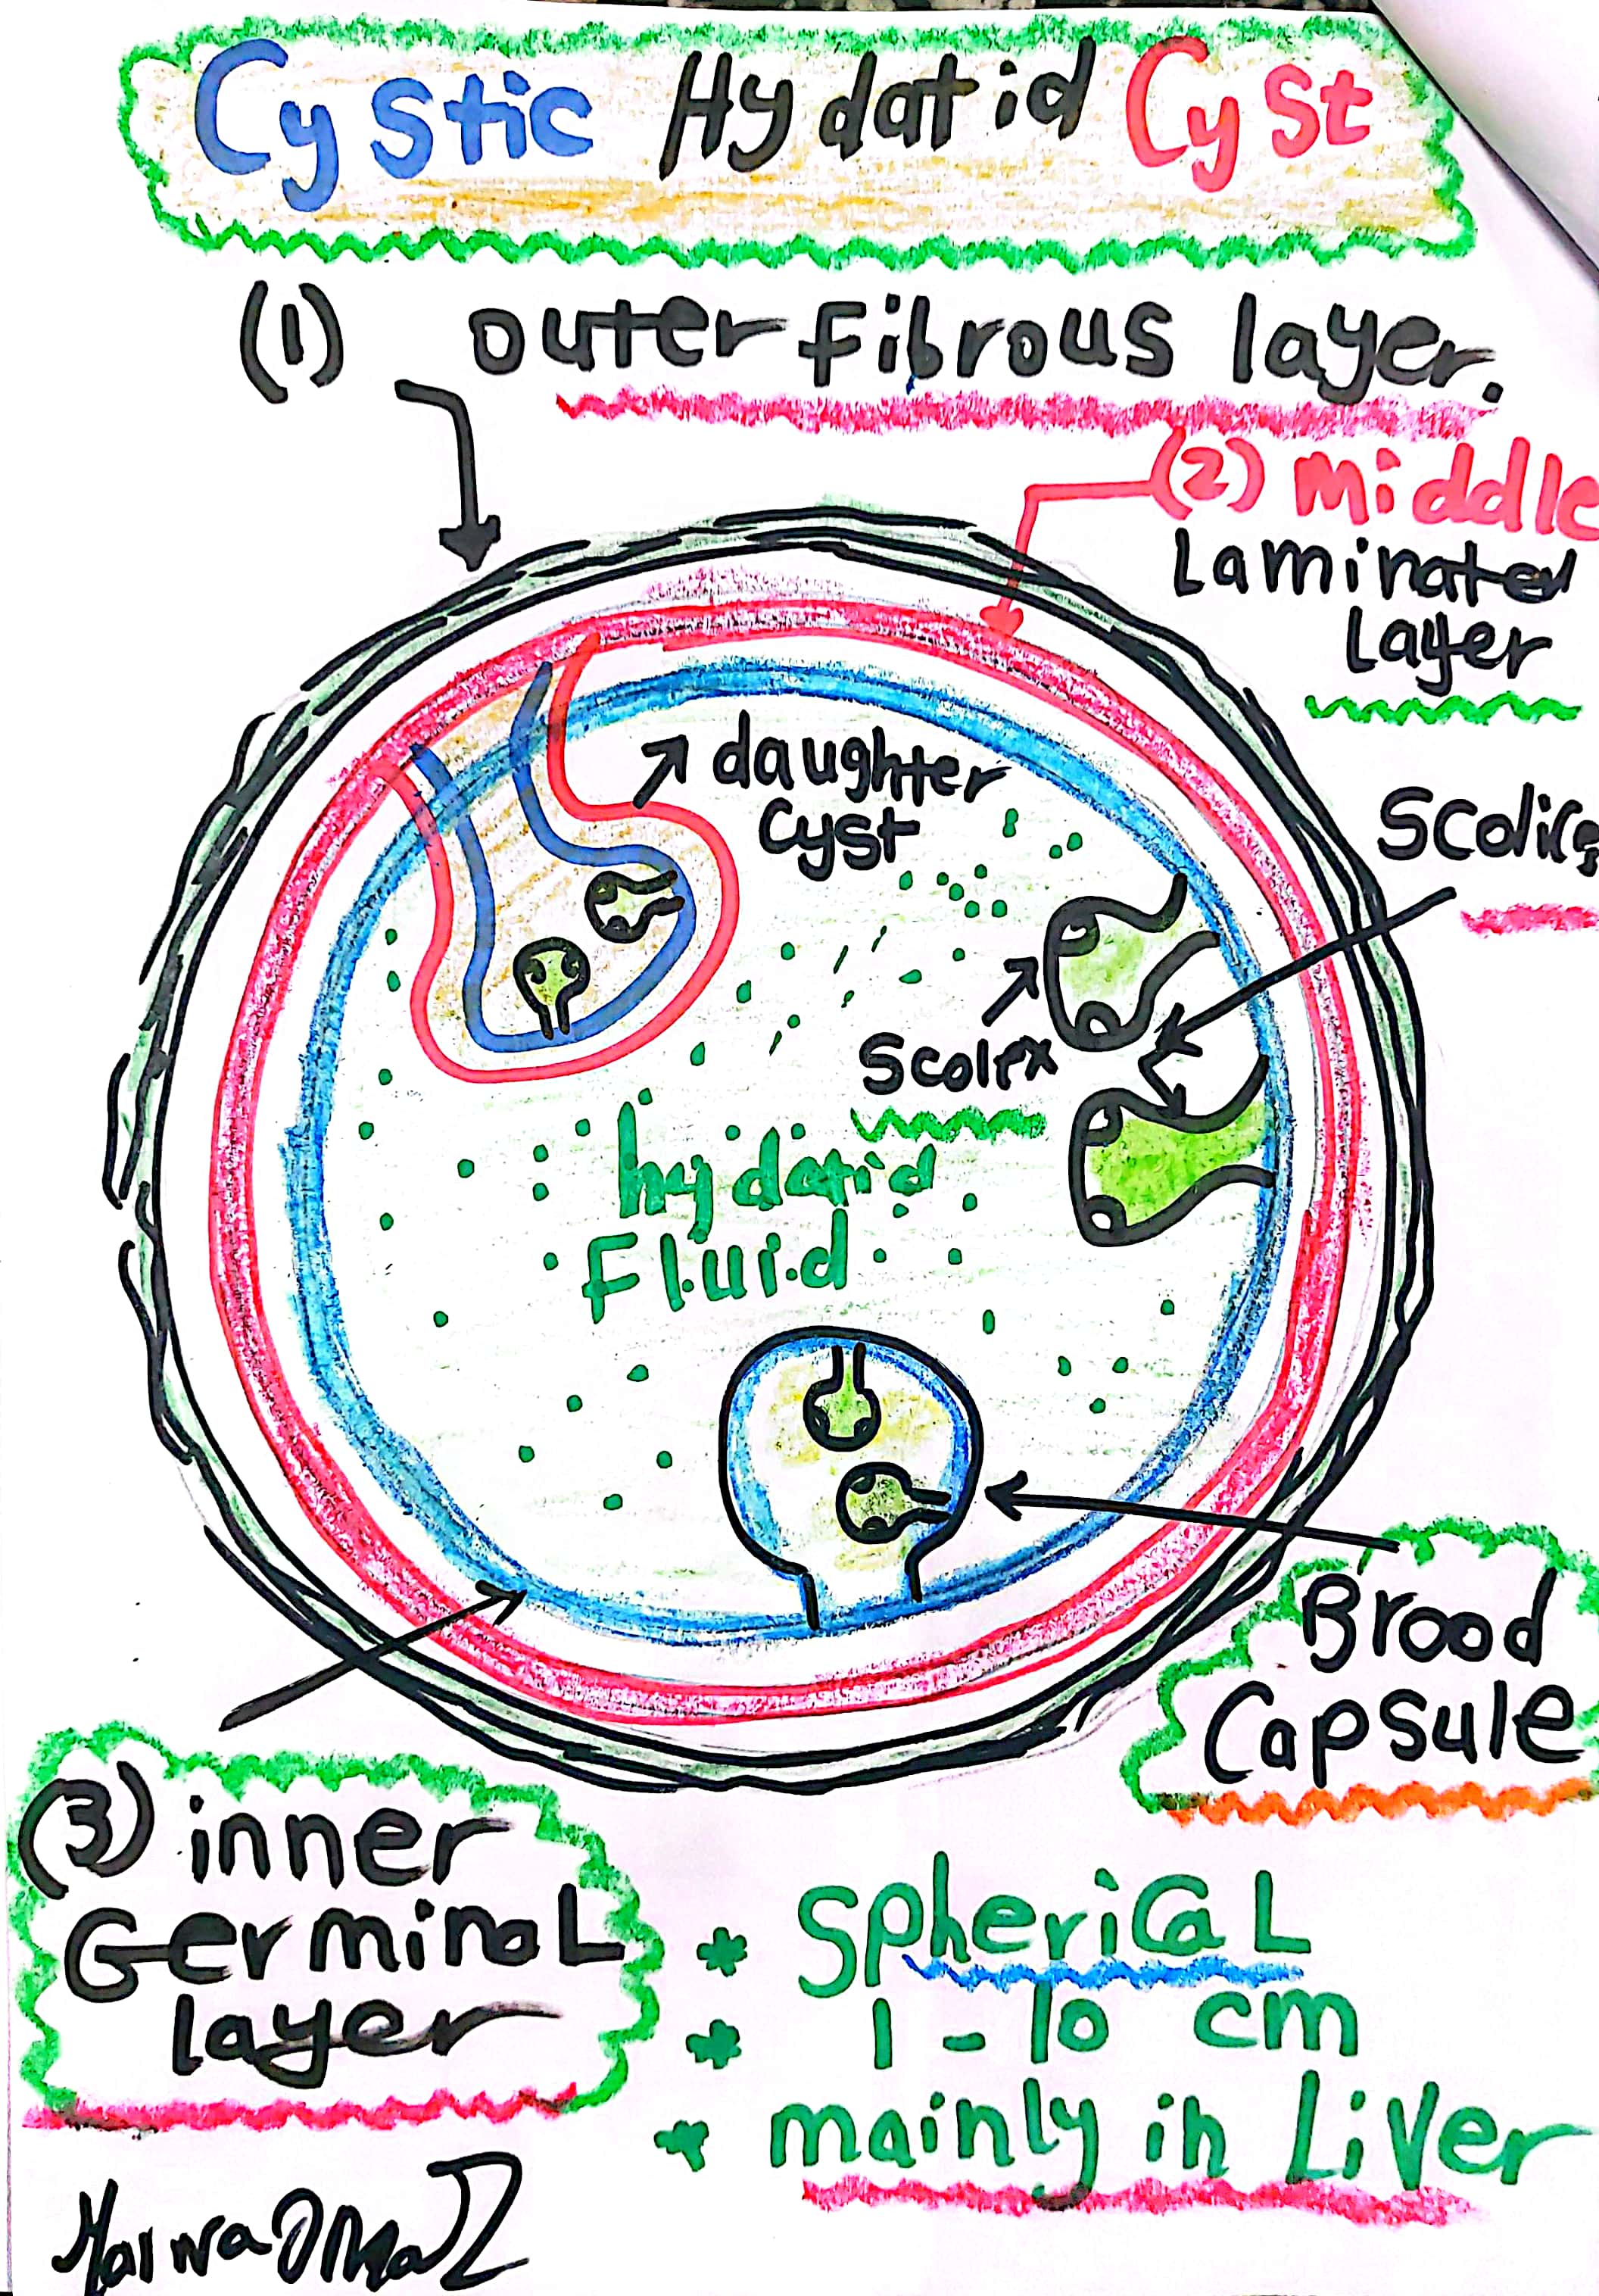 Cystic Hydatid Cyst
(1) outer fibrous layer.
(2) Middle
Laminated
Layer
daughter
Cyst
Scolices
Scolex
hydatid
Fluid
Brood
Capsule
(3) inner
Germinal
layer
* Spherical
* 1 - 10 cm
* mainly in Liver